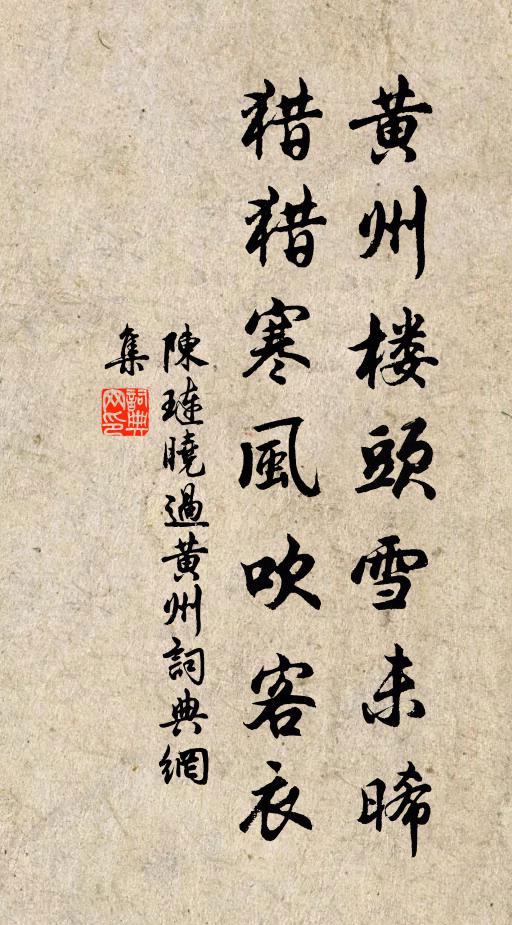 黄州楼頭雪未晞
猎猎寒風吹客衣
陳璉曉過黄州詞典網
集
詞典网印